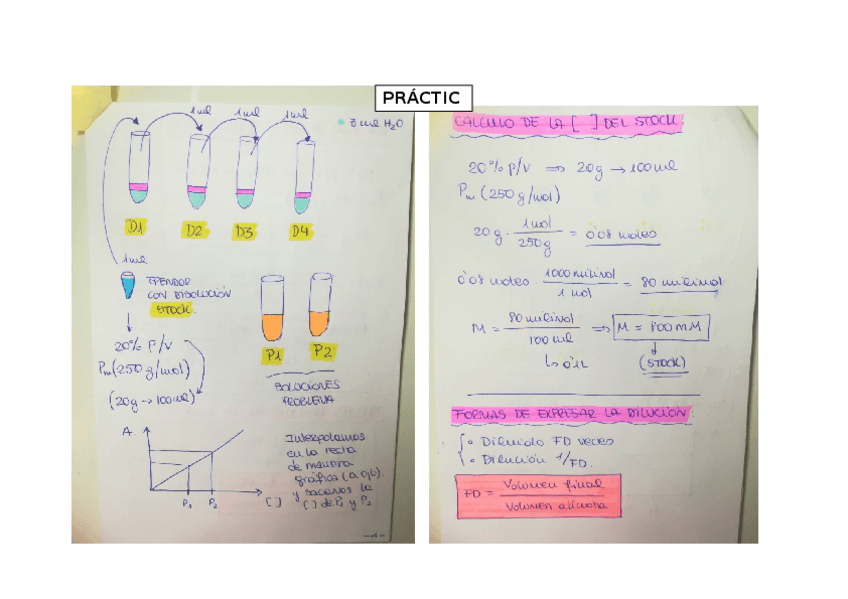 PRÁCTIC
1 ml 1 ml 1 ml
3 ml H₂O
D1 D2 D3 D4
1 ml
EPENDOR
CON DISOLUCIÓN
STOCK.
20% P/V
Pm (250 g/mol)
(20g → 100 ml)
P1 P2
SOLUCIONES
PROBLEMA
A
P₁ P₂ [ ]
Interpolamos
en la recta
de manera
gráfica (a ojo).
y sacamos la
[ ] de P₁ y P₂
CALCULO DE LA [ ] DEL STOCK
20% P/V ⇒ 20g → 100 ml
Pm (250 g/mol)
20g · 1 mol / 250 g = 0'08 moles
0'08 moles · 1000 milimol / 1 mol = 80 milimol
M = 80 milimol / 100 ml ⇒ M = 800 mM
↳ 0'1 L (STOCK)
FORMAS DE EXPRESAR LA DILUCIÓN
• Diluido FD veces
• Dilución 1/FD.
FD = Volumen final / Volumen alícuota